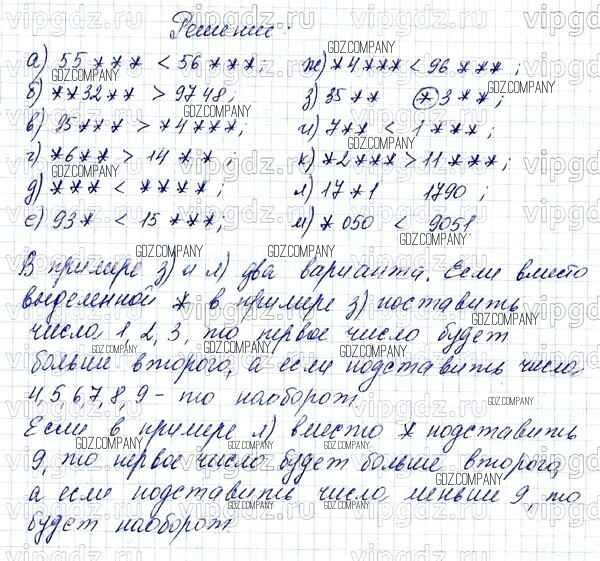 Решение:
а) 55*** < 56***; ж) *4*** < 96***;
б) **32** > 9748; з) 35** ⊛3**;
в) 95*** > *4***; и) 7** < 1***;
г) *6**> 14**; к) *2***>11***;
д) *** < ****; л) 17*1 1790;
е) 93* < 15***; м) *050 < 9051
В примере з) и л) два варианта. Если вместо
выделенной * в примере з) поставить
числа 1, 2, 3, то первое число будет
больше второго, а если подставить числа
4, 5, 6, 7, 8, 9 - то наоборот.
Если в примере л) вместо * подставить
9, то первое число будет больше второго,
а если подставить число меньше 9, то
будет наоборот.